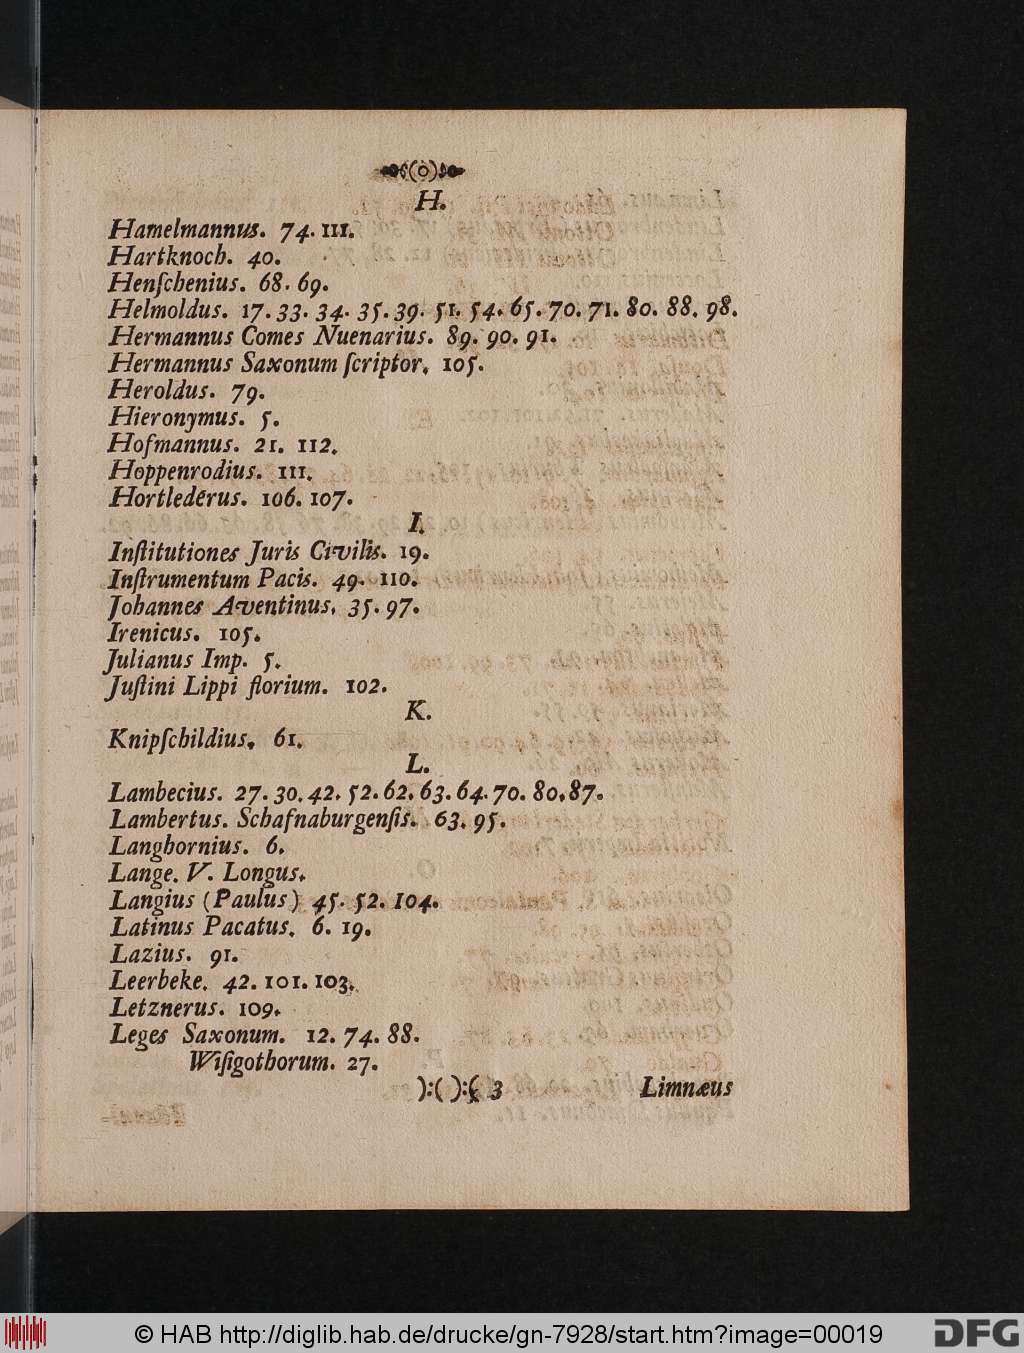 H.
Hamelmannus. 74. 111.
Hartknoch. 40.
Henſchenius. 68. 69.
Helmoldus. 17. 33. 34. 35. 39. 51. 54. 65. 70. 71. 80. 88. 98.
Hermannus Comes Nuenarius. 89. 90. 91.
Hermannus Saxonum ſcriptor. 105.
Heroldus. 79.
Hieronymus. 5.
Hofmannus. 21. 112.
Hoppenrodius. 111.
Hortlederus. 106. 107.
I.
Inſtitutiones Juris Civilis. 19.
Inſtrumentum Pacis. 49. 110.
Johannes Aventinus. 35. 97.
Irenicus. 105.
Julianus Imp. 5.
Juſtini Lippi florium. 102.
K.
Knipſchildius. 61.
L.
Lambecius. 27. 30. 42. 52. 62. 63. 64. 70. 80. 87.
Lambertus. Schafnaburgenſis. 63. 95.
Langhornius. 6.
Lange. V. Longus.
Langius (Paulus) 45. 52. 104.
Latinus Pacatus. 6. 19.
Lazius. 91.
Leerbeke. 42. 101. 103.
Letznerus. 109.
Leges Saxonum. 12. 74. 88.
Wiſigothorum. 27.
):( ):( 3 Limnæus
© HAB http://diglib.hab.de/drucke/gn-7928/start.htm?image=00019 DFG